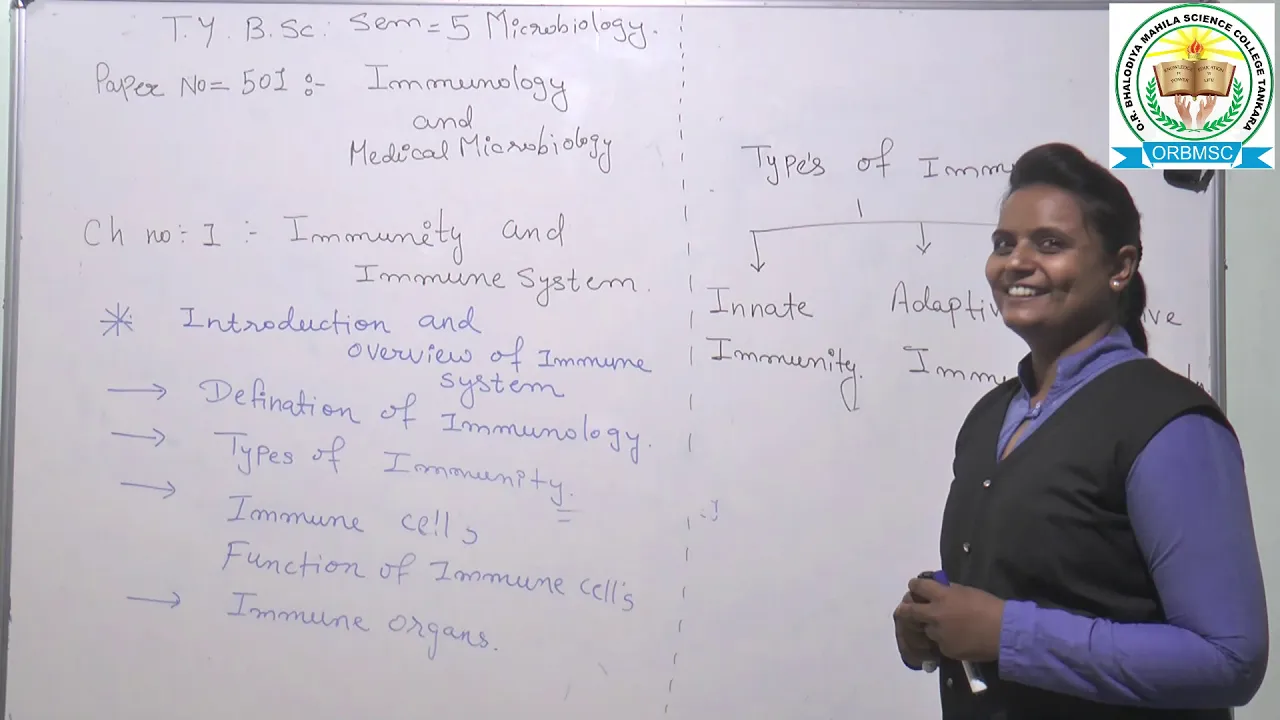 T.Y. B.Sc: Sem = 5 Microbiology.
Paper No = 501 :- Immunology
and
Medical Microbiology
Ch no:- I :- Immunity and
Immune System.
* Introduction and
overview of Immune
system
→ Defination of Immunology.
→ Types of Immunity.
→ Immune cells
Function of Immune cell's
→ Immune organs.
Type's of Imm
Innate Adaptiv ve
Immunity. Imm
O.R. BHALODIYA MAHILA SCIENCE COLLEGE TANKARA
KNOWLEDGE IS POWER
EDUCATION IS LIFE
ORBMSC